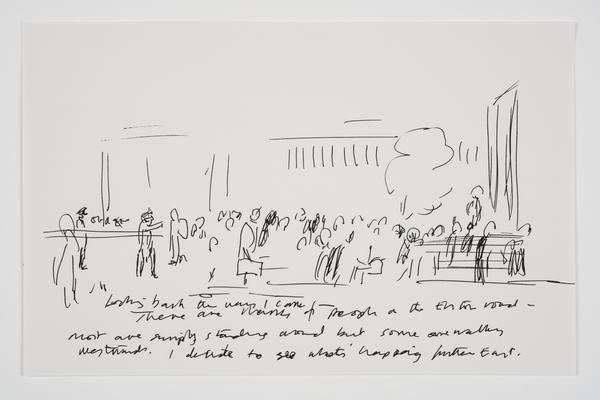 orange
Looking back the way I came —
There are thousands of people on the Euston road —
most are simply standing around but some are walking
westwards. I decide to see what's happening further East.